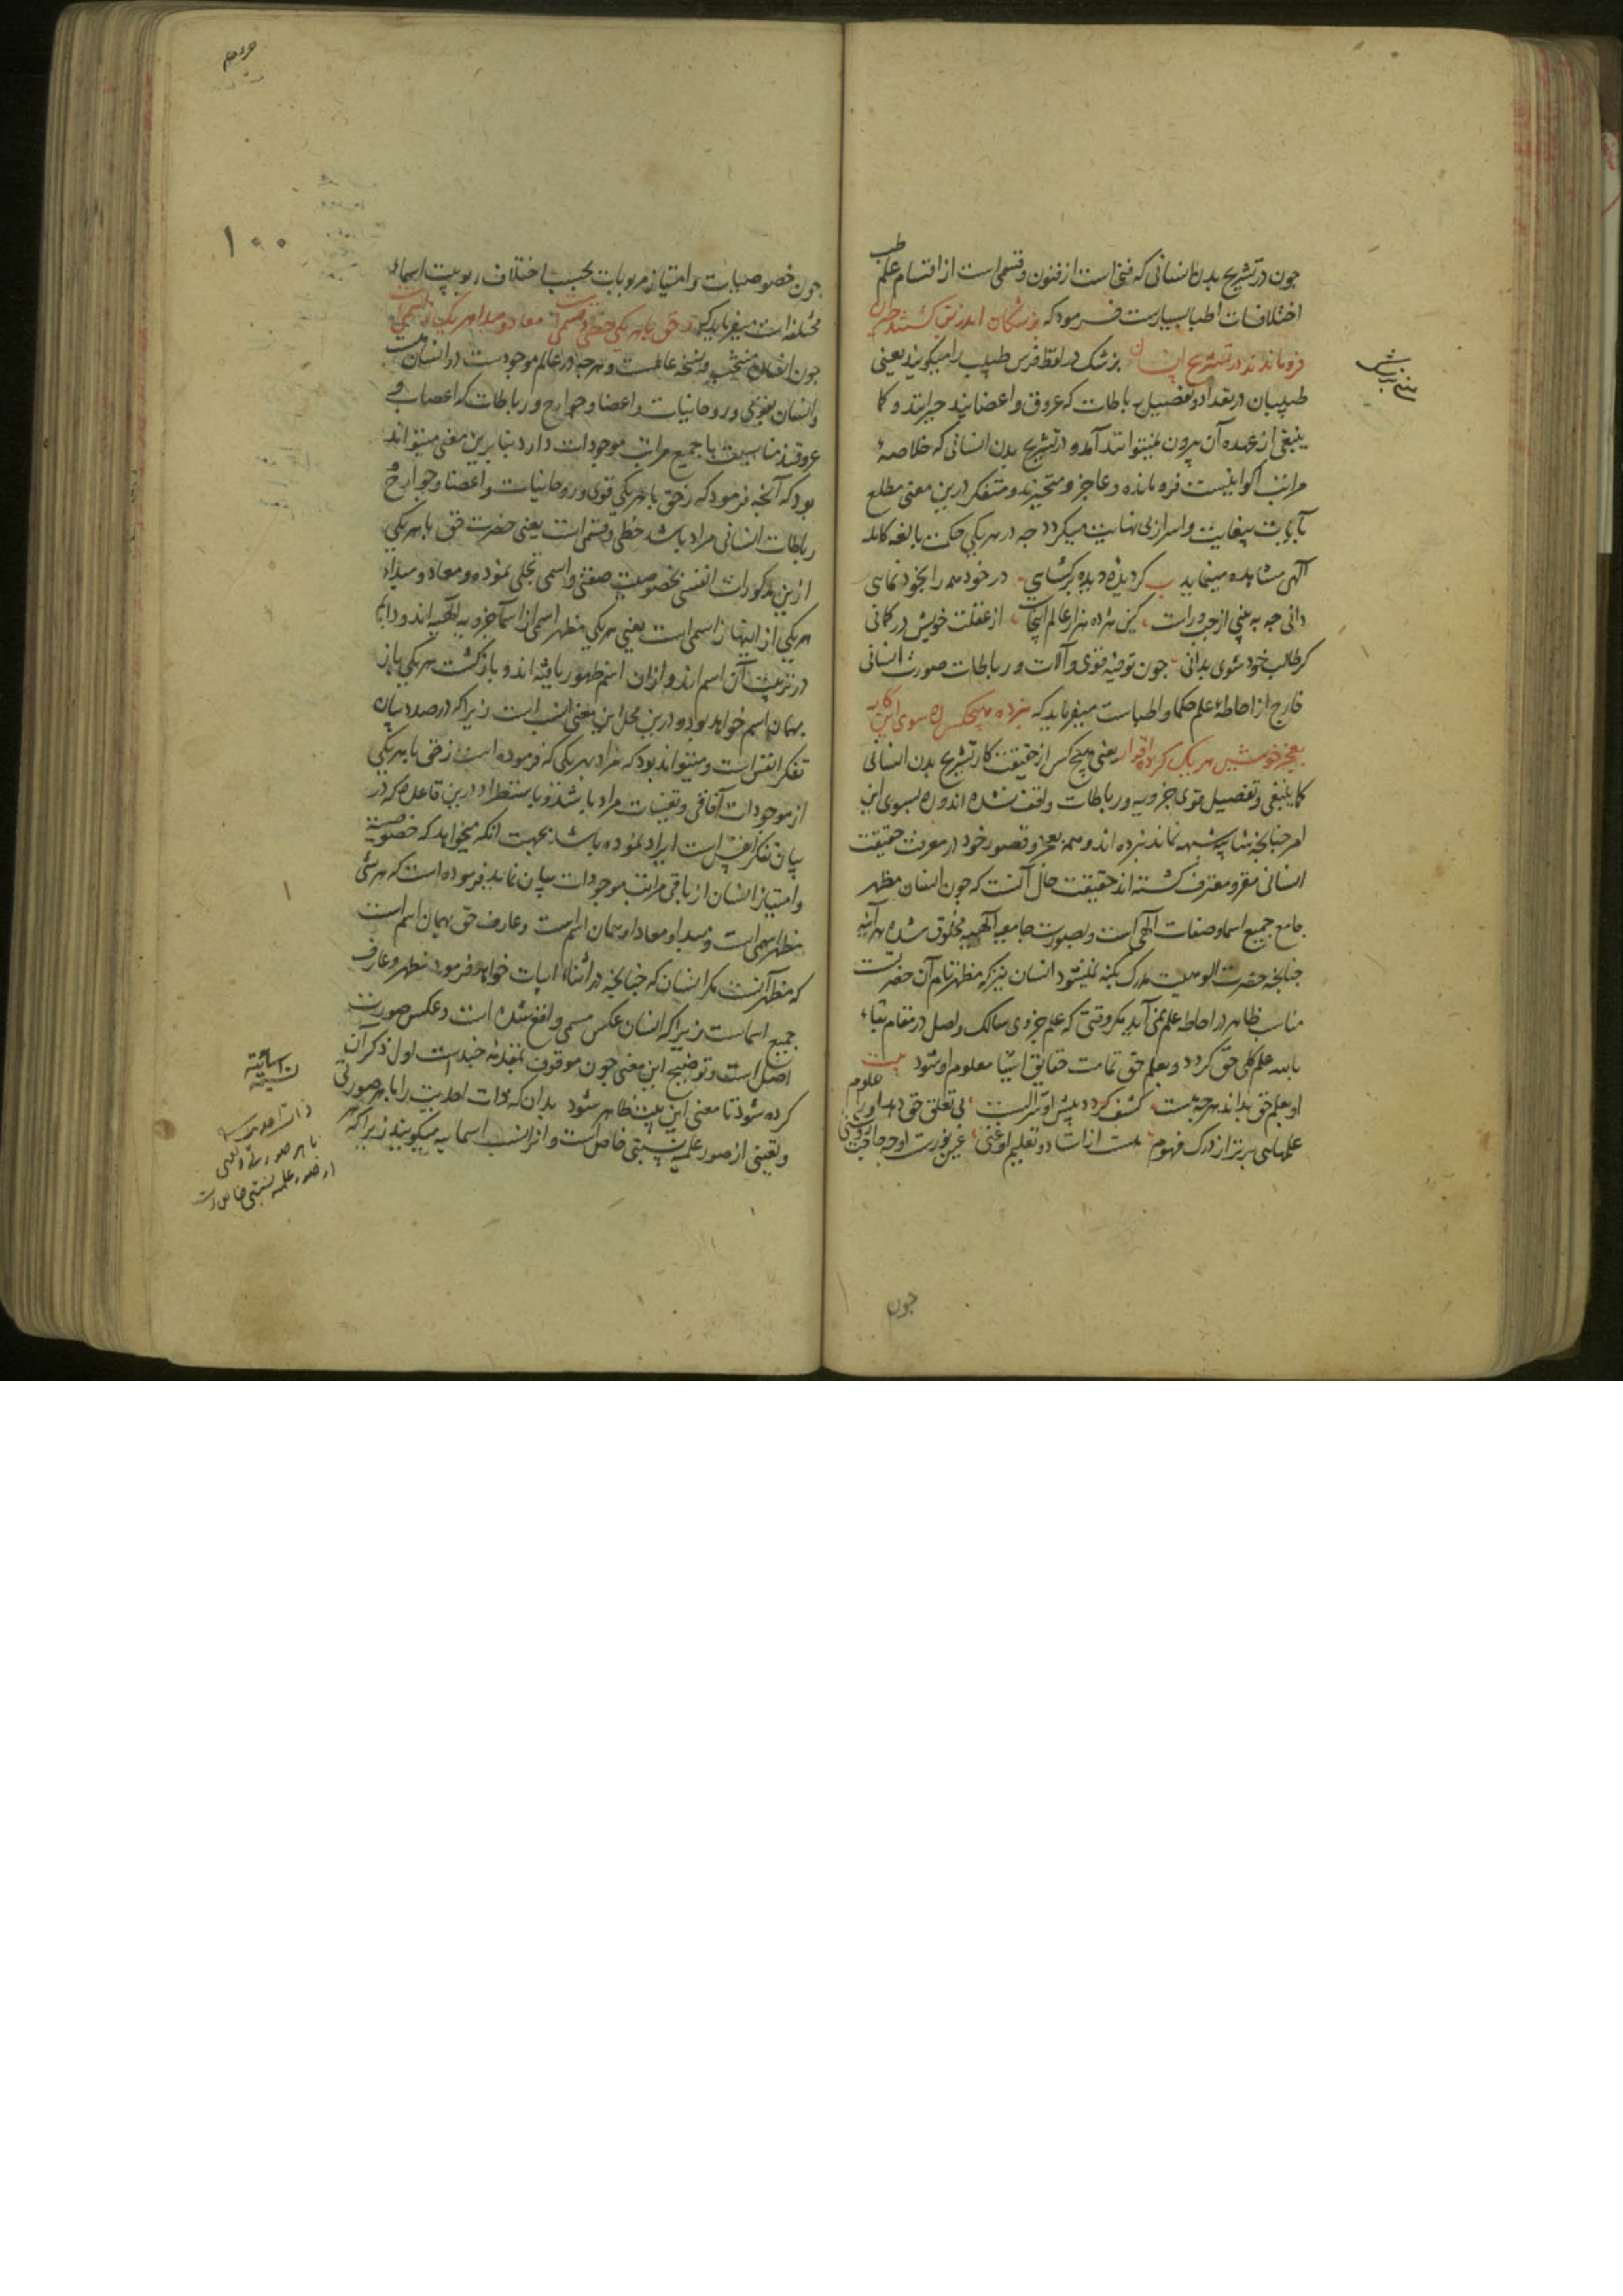 چون در تشریح بدن انسانی که فنی است از فنون و قسمی است از اقسام علم طب
اختلافات اطبا بسیارست فرمود که پزشکان اندرین گشتند حیران
فرو ماندند در تشریح انسان پزشک در لفظ فرس طبیب را میکویند یعنی
طبیبان در تعداد و تفصیل رباطات که عروق و اعضایند حیرانند و کما
ینبغی از عهده آن بیرون نمیتوانند آمد و در تشریح بدن انسانی که خلاصهٔ
مراتب اکوانیست فرو مانده و عاجز و متحیرند و متفکر درین معنی مطلع
بآیات بیغایت و اسرار بی نهایت میکردد چه در هر یکی حکمت بالغه کامله
الهی مشاهده مینماید
دانی چه به بینی از چپ و راست کین هژده هزار عالم اینجاست از غفلت خویش در کمانی
کر طالب خود شوی بدانی چون توفیه قوی و آلات و رباطات صورت انسانی
خارج از احاطهٔ علم حکما و اطباست میفرماید که نبرده هیچکس ره سوی این کار
بعجز خویش هر یک کرده اقرار یعنی هیچ کس از حقیقت کار تشریح بدن انسانی
کما ینبغی و تفصیل قوی جزویه و رباطات واقف نشده اند و ره بسوی این
امر چنانچه شایبه شبهه نماند نبرده اند و همه بعجز و قصور خود در معرفت حقیقت
انسانی مقر و معترف کشته اند حقیقت حال آنست که چون انسان مظهر
جامع جمیع اسما و صفات الهی است و بصورت جامعیه الهیه مخلوق شده هر آینه
چنانچه حضرت الوهیت مدرک بکنه نمیشود انسان نیز که مظهر تام آن حضرتست
مناسب ظاهر در احاطه علم نمی آید مکر وقتی که علم جزوی سالک واصل در مقام بقاء
بالله علم کلی حق کردد و بعلم حق تمامت حقایق اشیا معلوم او شود بیت
او بعلم حق بداند هرچه هست کشف کردد پیش او
علمهای برتر از درک فهوم
چون
۱۰۰
چون خصوصیات و امتیاز مربوبات بحسب اختلاف ربوبیت اسماء
مختلفه است میفرماید که ز حق با هر یکی حظی و قسمی است معاد و مبدا هر یک ز اسمی است
چون انسان منتخب و نسخه عالمست و هرچه در عالم موجودست در انسان هست
و انسان بقوی و روحانیات و اعضا و جوارح و رباطات که اعصاب و
عروقند مناسبت با جمیع مراتب موجودات دارد بنابرین معنی میتواند
بود که آنچه فرمود که ز حق با هر یکی قوی و روحانیات و اعضا و جوارح
رباطات انسانی مراد باشد حظی و قسمی است یعنی حضرت حق با هر یکی
ازین مذکورات انفسی بخصوصیت صفتی و اسمی تجلی نموده و معاد و مبداء
هر یکی از اینها ز اسمی است یعنی هر یکی مظهر اسمی از اسماء جزویه الهیه اند و دایم
در تربیت آن اسم اند و از آن اسم ظهور یافته اند و بازکشت هر یکی باز
بهمان اسم خواهد بود و درین محل این معنی انسب است زیرا که در صدد بیان
تفکر انفس است و میتواند بود که مراد بهر یکی که فرموده است ز حق با هر یکی
از موجودات آفاقی و تعینات مراد باشد و باستطراد درین قاعده که در
بیان تفکر انفس است ایراد نموده باشد بجهت انکه میخواهد که خصوصیت
و امتیاز انسان از باقی مراتب موجودات بیان نماید فرموده است که هر شئ
مظهر اسمی است و مبدا و معاد او همان اسم است و عارف حق بهمان اسم است
که مظهر آنست مکر انسان که چنانچه در اثناء ابیات خواهد فرمود مظهر و عارف
جمیع اسماست زیرا که انسان عکس مسمی واقع شده است و عکس صورت
اصل است و توضیح این معنی چون موقوف بمقدمهٔ چندست اول ذکر آن
کرده شود تا معنی این بیت ظاهر شود بدان که ذات احدیت را با هر صورتی
و تعینی از صور علمیه نسبتی خاص است و آنرا نسب اسمائیه میکویند زیرا که
ذات احدیت را
با هر صورتی و تعینی
از صور علمیه نسبتی خاص است